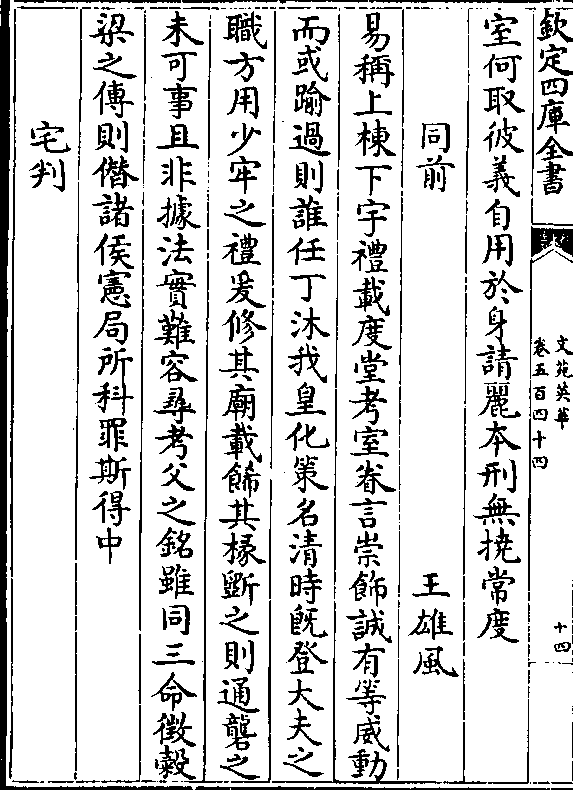 欽定四庫全書
文苑英華
卷五百四十四
十四
室何取彼義自用於身請麗本刑無撓常度
同前
王雄風
易稱上棟下宇禮載度堂考室眷言崇飾誠有等威動
而或踰過則誰任丁沐我皇化策名清時旣登大夫之
職方用少牢之禮爰修其廟載餙其椽斵之則通礱之
未可事且非據法實難容尋考父之銘雖同三命徵榖
梁之傳則僭諸侯憲局所科罪斯得中
宅判